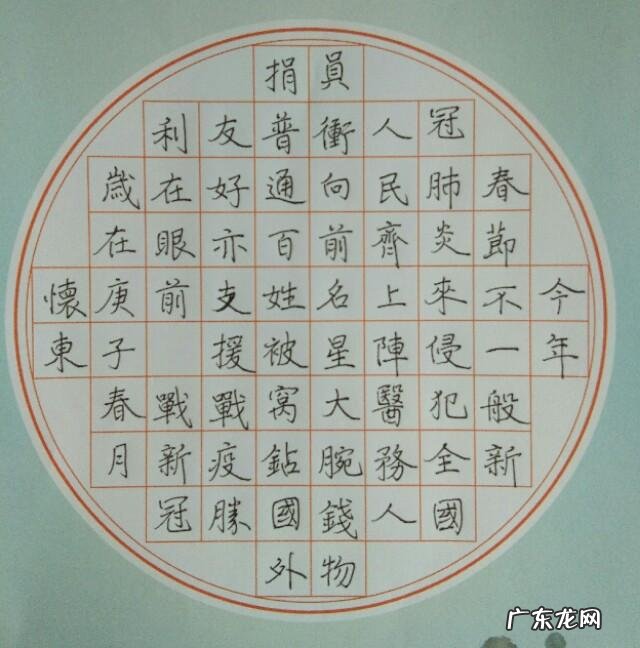 今年
春節不一般新
冠肺炎來侵犯全國
人民齊上陣醫務人
員衝向前名星大腕錢物
捐普通百姓被窝鉆國外
友好亦支援戰疫勝
利在眼前 戰新冠
歲在庚子春月
懷東
广东龙网